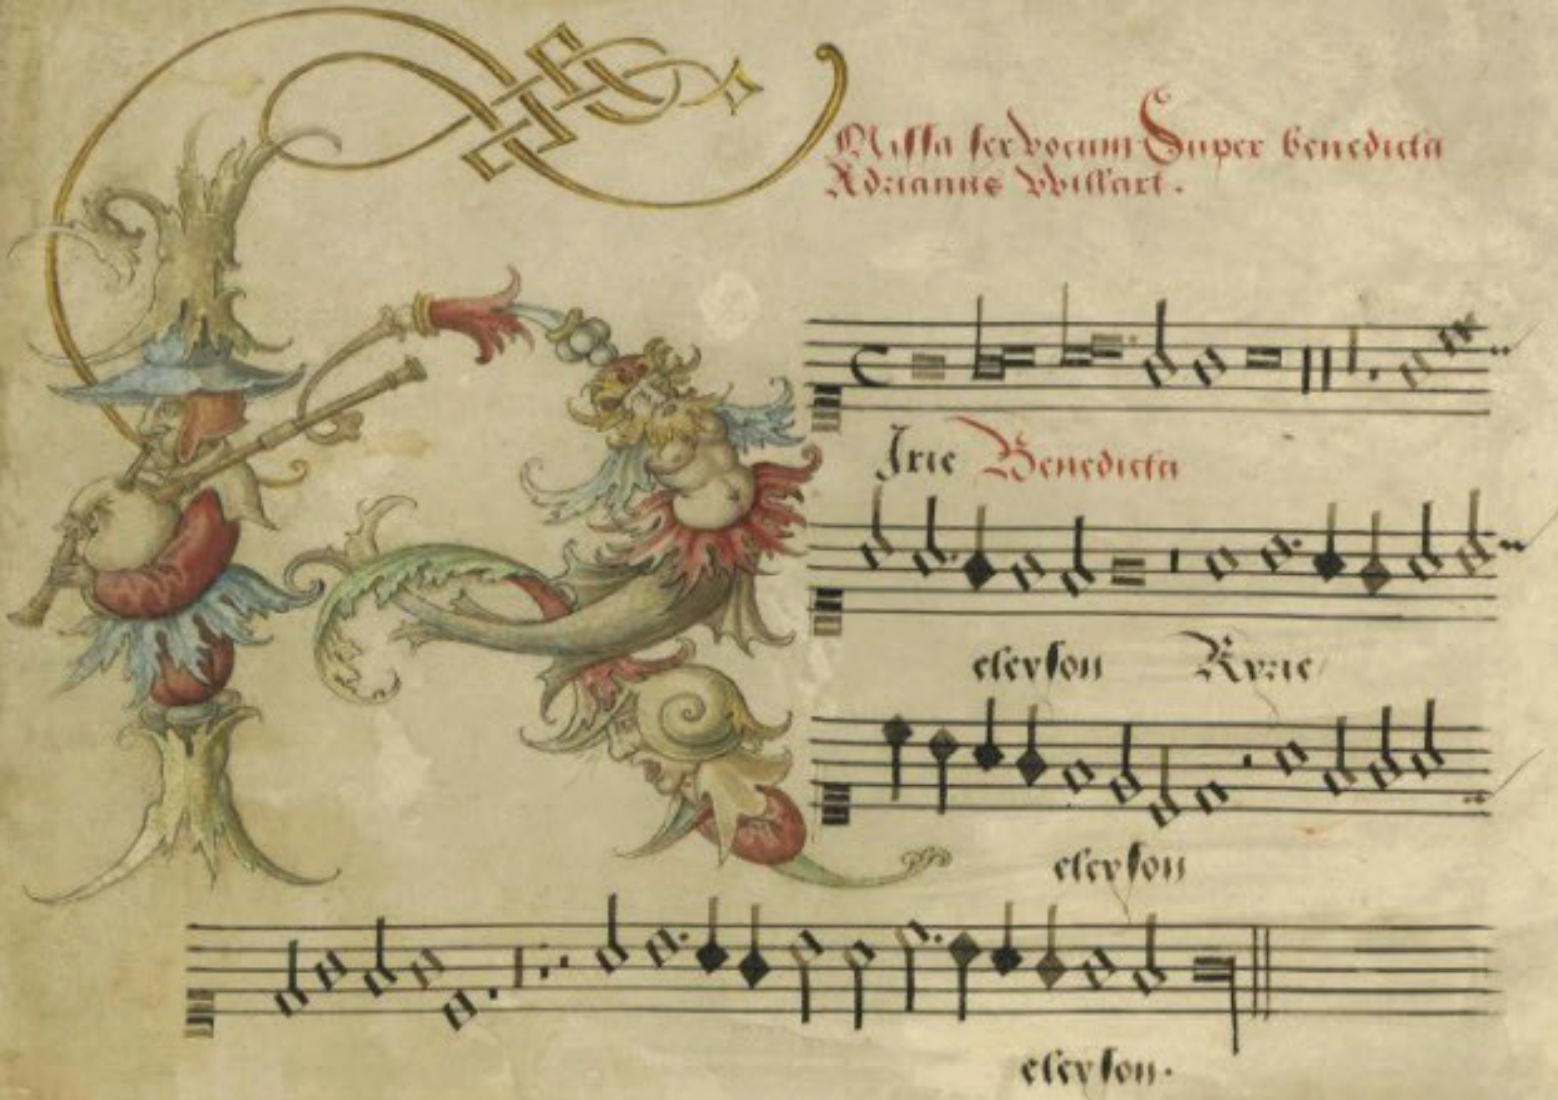 Missa sex vocum Super benedicta
Adrianus VVillart.
Irie Benedicta
eleyson Kyrie
eleyson
eleyson.